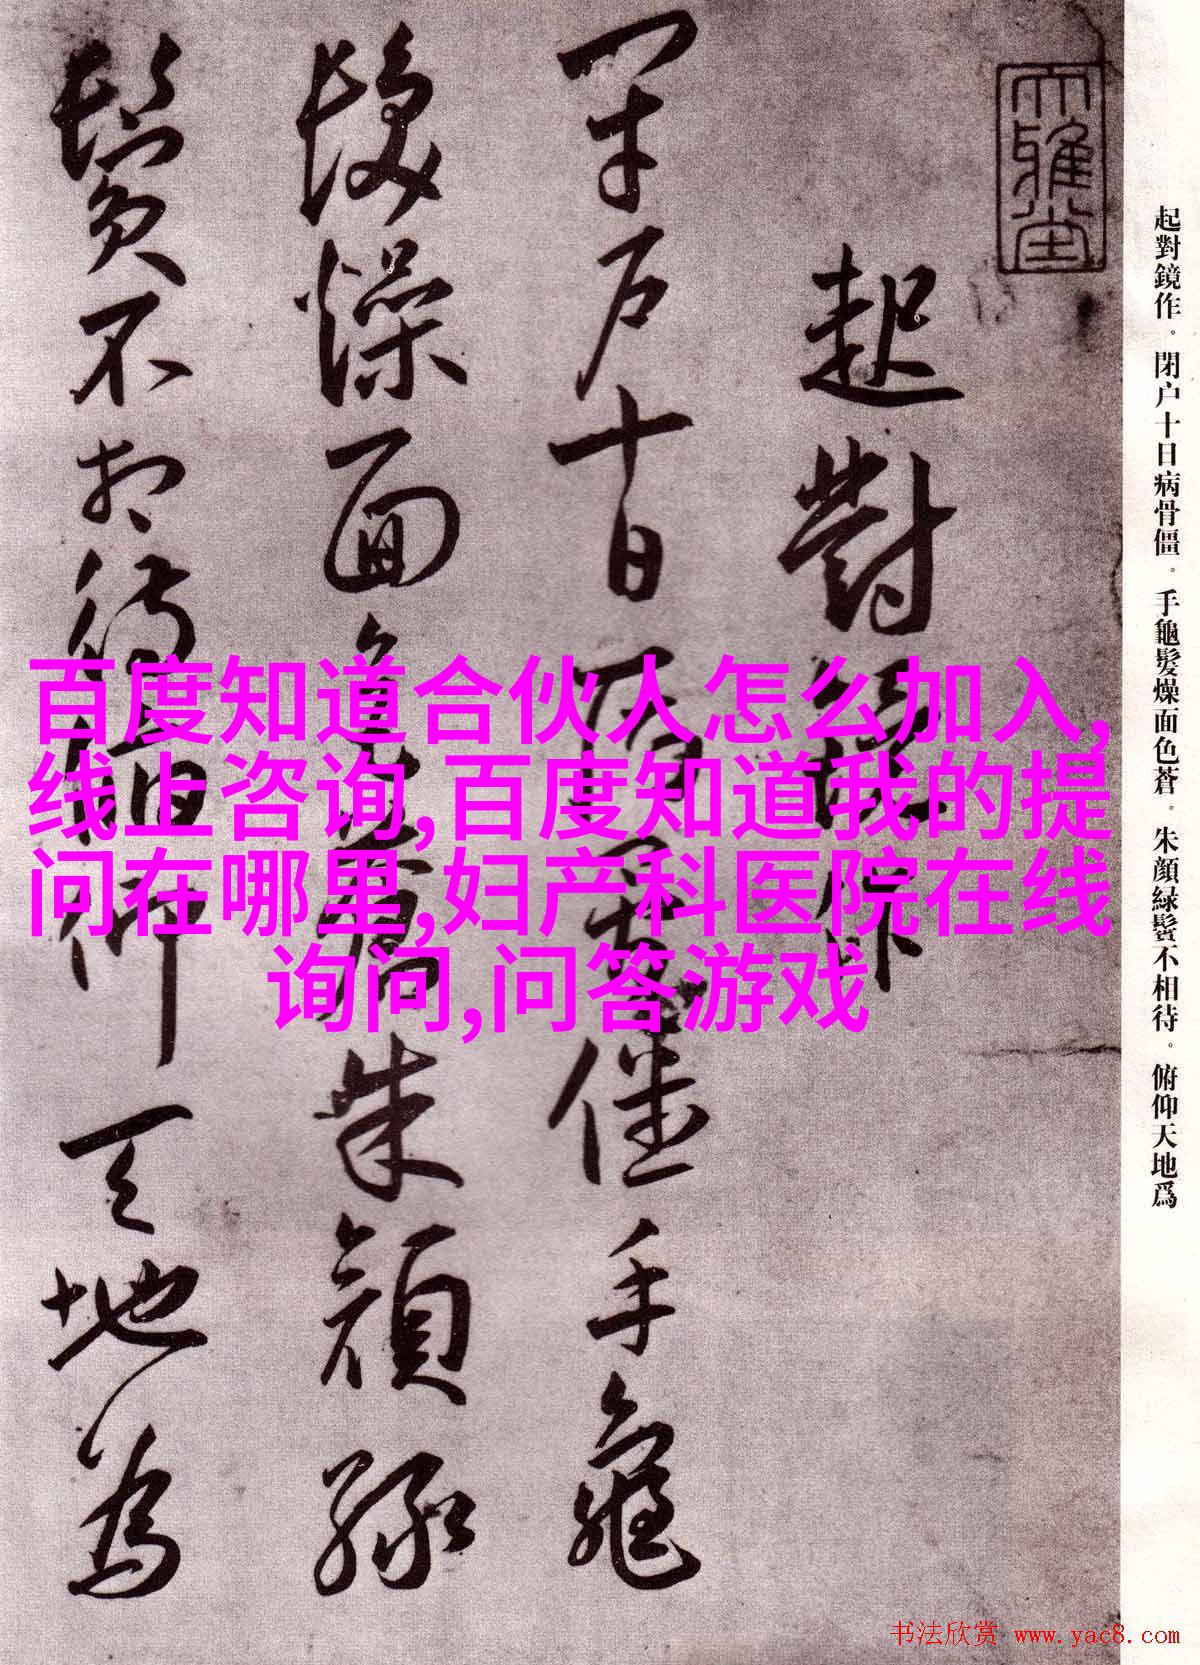 大雅堂
起對鏡作
閉户十日病骨僵手龜
髮燥面色蒼朱顔緑
鬢不相待俯仰天地為
起對鏡作。閉户十日病骨僵。手龜髮燥面色蒼。朱顔緑鬢不相待。俯仰天地爲
百度知道合伙人怎么加入,
线上咨询,百度知道我的提
问在哪里,妇产科医院在线
询问,问答游戏
书法欣赏 www.yac8.com